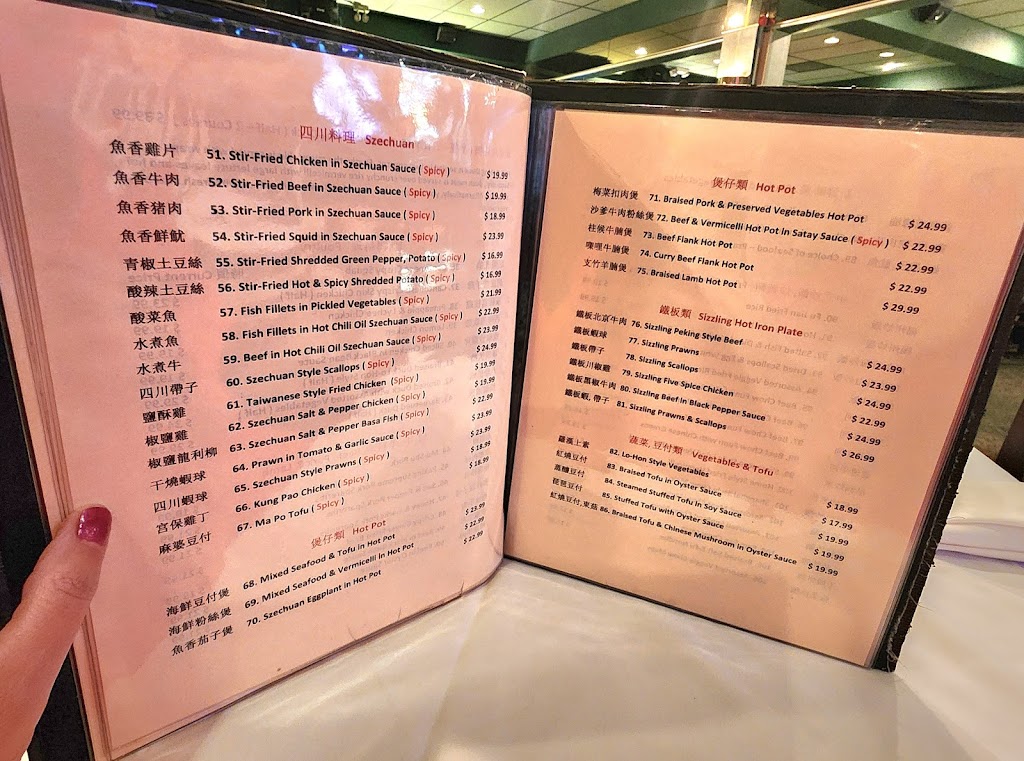 四川料理 Szechuan
魚香雞片 51. Stir-Fried Chicken in Szechuan Sauce ( Spicy ) $ 19.99
魚香牛肉 52. Stir-Fried Beef in Szechuan Sauce ( Spicy ) $ 19.99
魚香猪肉 53. Stir-Fried Pork in Szechuan Sauce ( Spicy ) $ 18.99
魚香鮮魷 54. Stir-Fried Squid in Szechuan Sauce ( Spicy ) $ 23.99
青椒土豆絲 55. Stir-Fried Shredded Green Pepper, Potato ( Spicy ) $ 16.99
酸辣土豆絲 56. Stir-Fried Hot & Spicy Shredded Potato ( Spicy ) $ 16.99
酸菜魚 57. Fish Fillets in Pickled Vegetables ( Spicy ) $ 21.99
水煮魚 58. Fish Fillets in Hot Chili Oil Szechuan Sauce ( Spicy ) $ 22.99
水煮牛 59. Beef in Hot Chili Oil Szechuan Sauce ( Spicy ) $ 23.99
四川帶子 60. Szechuan Style Scallops ( Spicy ) $ 24.99
鹽酥雞 61. Taiwanese Style Fried Chicken (Spicy ) $ 19.99
椒鹽雞 62. Szechuan Salt & Pepper Chicken ( Spicy ) $ 19.99
椒鹽龍利柳 63. Szechuan Salt & Pepper Basa Fish ( Spicy ) $ 22.99
干燒蝦球 64. Prawn in Tomato & Garlic Sauce ( Spicy ) $ 23.99
四川蝦球 65. Szechuan Style Prawns ( Spicy ) $ 23.99
宮保雞丁 66. Kung Pao Chicken ( Spicy ) $ 18.99
麻婆豆付 67. Ma Po Tofu ( Spicy ) $ 18.99
煲仔類 Hot Pot
海鮮豆付煲 68. Mixed Seafood & Tofu in Hot Pot $ 23.99
海鮮粉絲煲 69. Mixed Seafood & Vermicelli in Hot Pot $ 22.99
魚香茄子煲 70. Szechuan Eggplant in Hot Pot $ 22.99
煲仔類 Hot Pot
梅菜扣肉煲 71. Braised Pork & Preserved Vegetables Hot Pot $ 24.99
沙爹牛肉粉絲煲 72. Beef & Vermicelli Hot Pot In Satay Sauce ( Spicy ) $ 22.99
柱候牛腩煲 73. Beef Flank Hot Pot $ 22.99
咖喱牛腩煲 74. Curry Beef Flank Hot Pot $ 22.99
支竹羊腩煲 75. Braised Lamb Hot Pot $ 29.99
鐵板類 Sizzling Hot Iron Plate
鐵板北京牛肉 76. Sizzling Peking Style Beef $ 24.99
鐵板蝦球 77. Sizzling Prawns $ 23.99
鐵板帶子 78. Sizzling Scallops $ 24.99
鐵板川椒雞 79. Sizzling Five Spice Chicken $ 22.99
鐵板黑椒牛肉 80. Sizzling Beef in Black Pepper Sauce $ 24.99
鐵板蝦, 帶子 81. Sizzling Prawns & Scallops $ 26.99
蔬菜, 豆付類 Vegetables & Tofu
羅漢上素 82. Lo-Hon Style Vegetables $ 18.99
紅燒豆付 83. Braised Tofu in Oyster Sauce $ 17.99
蒸釀豆付 84. Steamed Stuffed Tofu in Soy Sauce $ 19.99
琵琶豆付 85. Stuffed Tofu with Oyster Sauce $ 19.99
紅燒豆付,東菇 86. Braised Tofu & Chinese Mushroom in Oyster Sauce $ 19.99